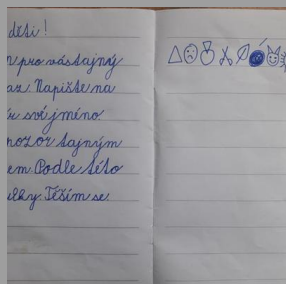 děti!
pro vás tajný
Napište na
své jméno.
pozor tajným
Podle této
Těším se